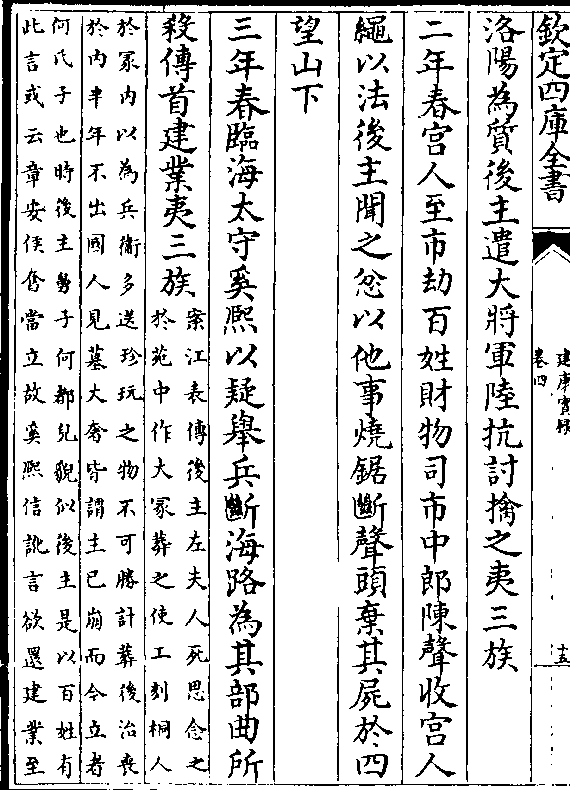 欽定四庫全書
建康實錄
卷四
十五
洛陽為質後主遣大將軍陸抗討擒之夷三族
二年春宫人至市劫百姓財物司市中郎陳聲收宫人
繩以法後主聞之忿以他事燒鋸斷聲頭棄其屍於四
望山下
三年春臨海太守奚熙以疑舉兵斷海路為其部曲所
殺傳首建業夷三族
案江表傳後主左夫人死思念之
於苑中作大冢葬之使工刻桐人
於冢内以為兵衛多送珍玩之物不可勝計葬後治喪
於内半年不出國人見墓大奢皆謂主已崩而今立者
何氏子也時後主舅子何都兒貌似後主是以百姓有
此言或云章安侯奮當立故奚熙信訛言欲還建業至